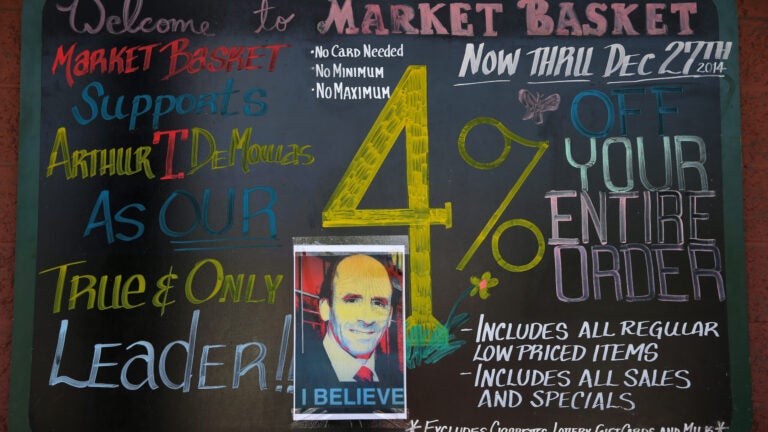 Welcome to MARKET BASKET
MARKET BASKET
Supports
ARTHUR T. DEMOULAS
AS OUR
TRUE & ONLY
LEADER!!
• NO CARD NEEDED
• NO MINIMUM
• NO MAXIMUM
4%
NOW THRU DEC 27TH
2014
OFF
YOUR
ENTIRE
ORDER
- INCLUDES ALL REGULAR
LOW PRICED ITEMS
- INCLUDES ALL SALES
AND SPECIALS
* EXCLUDES CIGARETTES, LOTTERY, GIFT CARDS AND MILK *
I BELIEVE